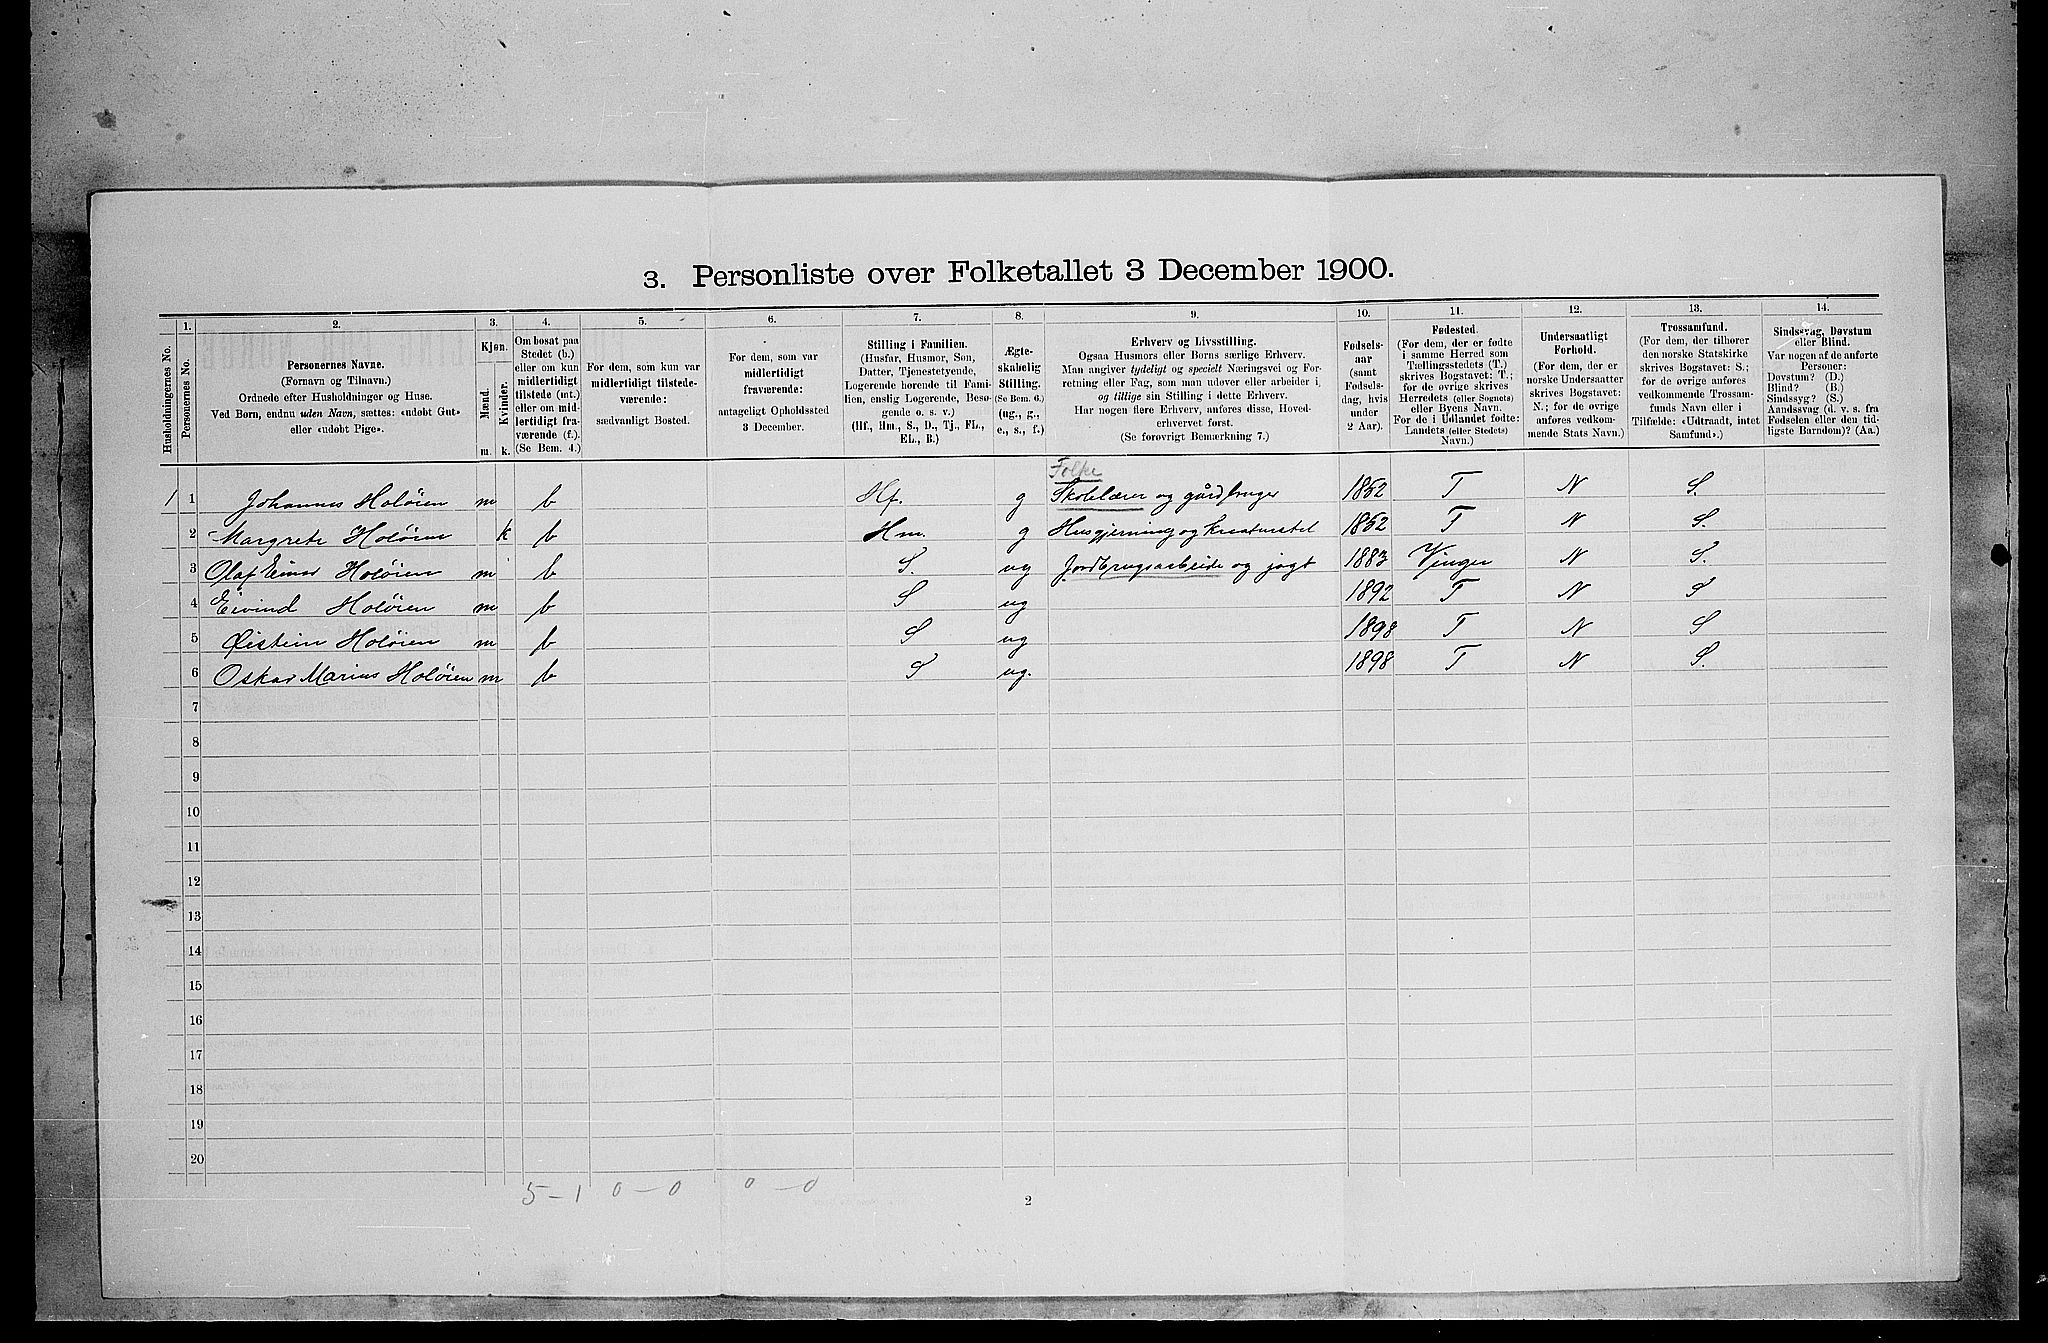 3. Personliste over Folketallet 3 December 1900.
Husholdningernes No.
1.
Personernes No.
2.
Personernes Navne.
(Fornavn og Tilnavn.)
Ordnede efter Husholdninger og Huse.
Ved Børn, endnu uden Navn, sættes: «udøbt Gut»
eller «udøbt Pige».
3.
Kjøn.
Mænd.
m.
Kvinder.
k.
4.
Om bosat paa
Stedet (b.)
eller om kun
midlertidigt
tilstede (mt.)
eller om mid-
lertidigt fra-
værende (f.).
(Se Bem. 4.)
5.
For dem, som kun var
midlertidigt tilstede-
værende:
sædvanligt Bosted.
6.
For dem, som var
midlertidigt
fraværende:
antageligt Opholdssted
3 December.
7.
Stilling i Familien.
(Husfar, Husmor, Søn,
Datter, Tjenestetyende,
Logerende hørende til Fami-
lien, enslig Logerende, Besø-
gende o. s. v.)
(Hf., Hm., S., D., Tj., FL.,
EL., B.)
8.
Ægte-
skabelig
Stilling.
(Se Bem. 6.)
(ug., g.,
e., s., f.)
9.
Erhverv og Livsstilling.
Ogsaa Husmors eller Børns særlige Erhverv.
Man angiver tydeligt og specielt Næringsvei og For-
retning eller Fag, som man udøver eller arbeider i,
og tillige sin Stilling i dette Erhverv.
Har nogen flere Erhverv, anføres disse, Hoved-
erhvervet først.
(Se forøvrigt Bemærkning 7.)
10.
Fødsels-
aar
(samt
Fødsels-
dag, hvis
under
2 Aar).
11.
Fødested.
(For dem, der er fødte
i samme Herred som
Tællingsstedets (T.)
skrives Bogstavet: T.;
for de øvrige skrives
Herredets (eller Sognets)
eller Byens Navn.
For de i Udlandet fødte:
Landets (eller Stedets)
Navn.)
12.
Undersaatligt
Forhold.
(For dem, der er
norske Undersaatter
skrives Bogstavet:
N.; for de øvrige
anføres vedkom-
mende Stats Navn.)
13.
Trossamfund.
(For dem, der tilhører
den norske Statskirke
skrives Bogstavet: S.;
for de øvrige anføres
vedkommende Trossam-
funds Navn eller i
Tilfælde: «Udtraadt, intet
Samfund».)
14.
Sindssvag, Døvstum
eller Blind.
Var nogen af de anførte
Personer:
Døvstum? (D.)
Blind? (B.)
Sindssyg? (S.)
Aandssvag (d. v. s. fra
Fødselen eller den tid-
ligste Barndom)? (Aa.)
Folke
1 1 Johannes Holöien m b Hf. g Skolelærer og gårdbruger 1852 T N S.
2 Margrete Holöien k b Hm. g Husgjerning og kreaturstel 1852 T N S.
3 Olaf Einar Holöien m b S. ug Jordbrugsarbeide og jagt 1883 Vinger N S.
4 Eivind Holöien m b S ug 1892 T N S
5 Øistein Holöien m b S ug 1898 T N S
6 Oskar Marius Holöien m b S ug. 1898 T N S.
7
8
9
10
11
12
13
14
15
16
17
18
19
20
5 – 1 0 – 0 0 – 0
2